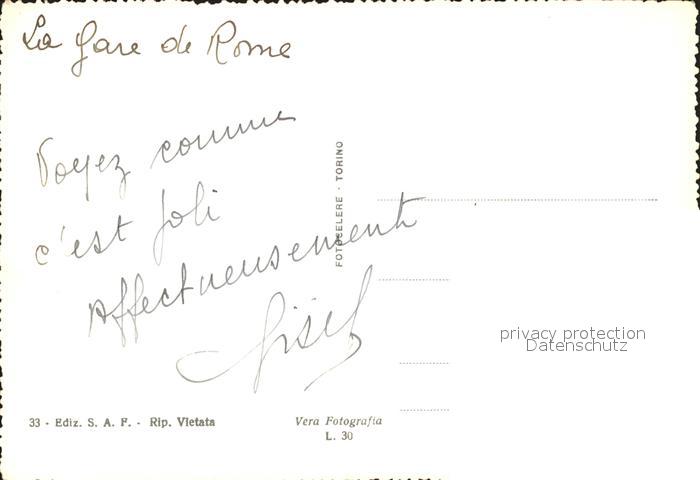 La Gare de Rome
Voyez comme
c'est joli
Affectueusement
Gisel
FOTOCELERE - TORINO
privacy protection
Datenschutz
33 - Ediz. S. A. F. - Rip. Vietata
Vera Fotografia
L. 30